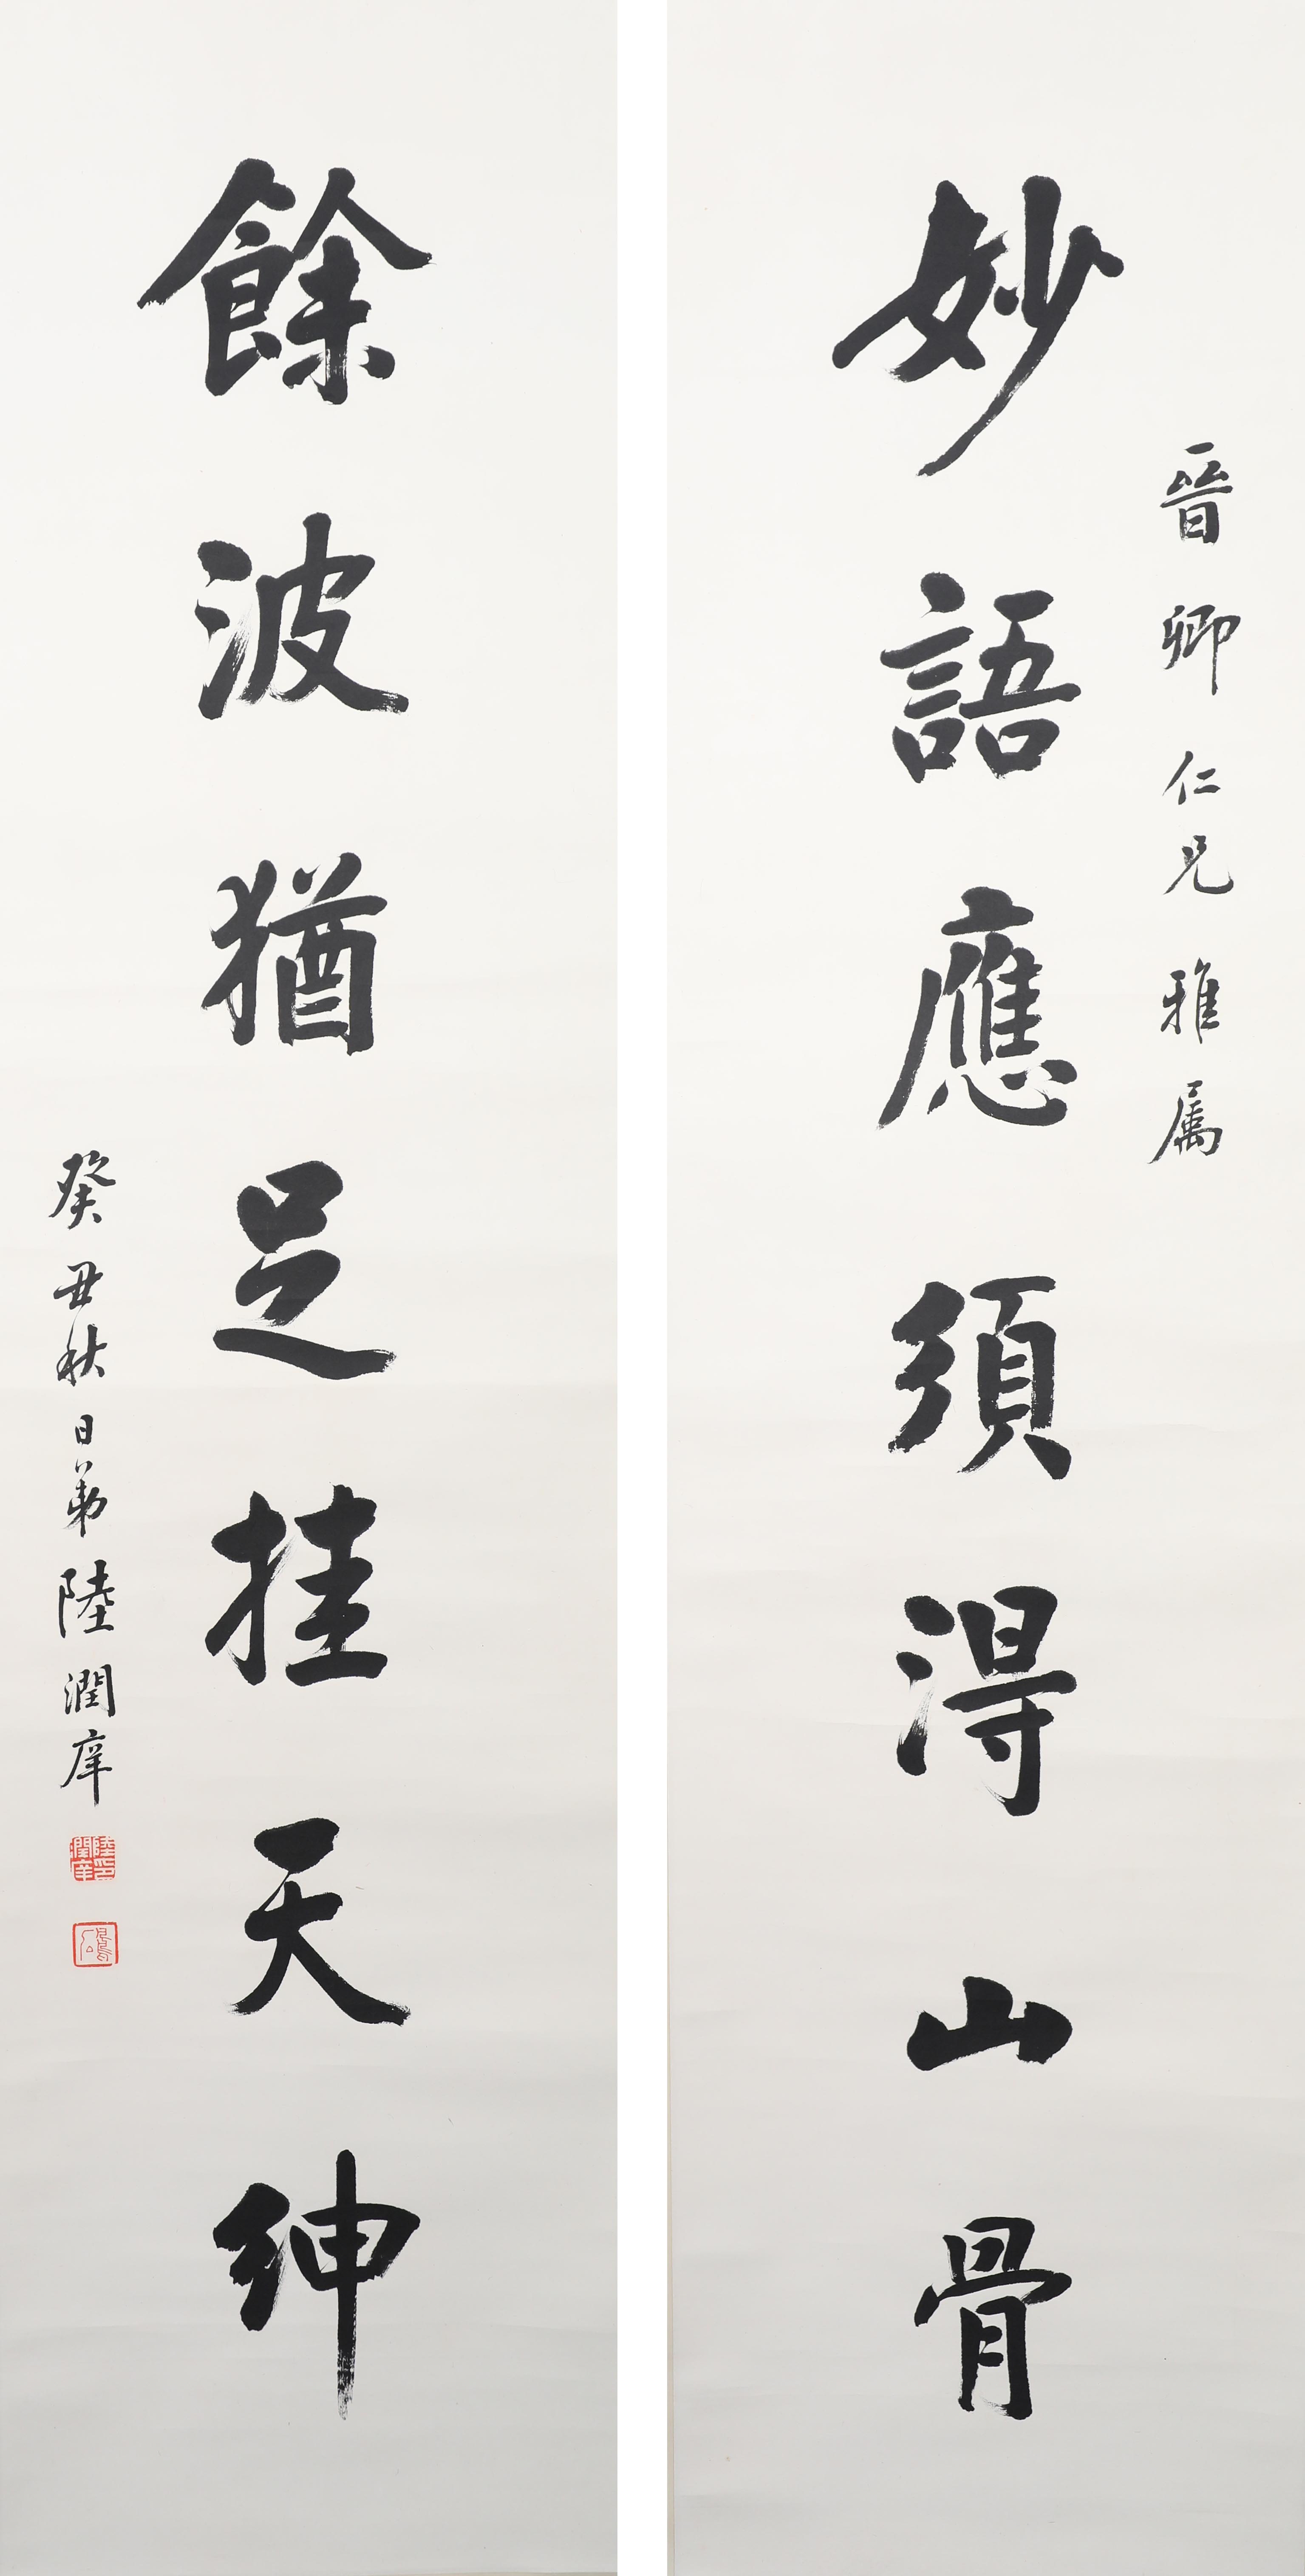 晉卿仁兄雅属
妙語應須得山骨
餘波猶足挂天紳
癸丑秋日弟陸潤庠
陸潤庠印